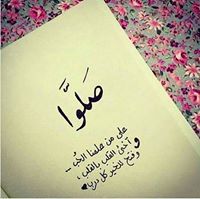 صَلُّوا
على من علمنا الحُب ..
آخىٰ القلب بالقلب ،
وفتح للخير كل درب